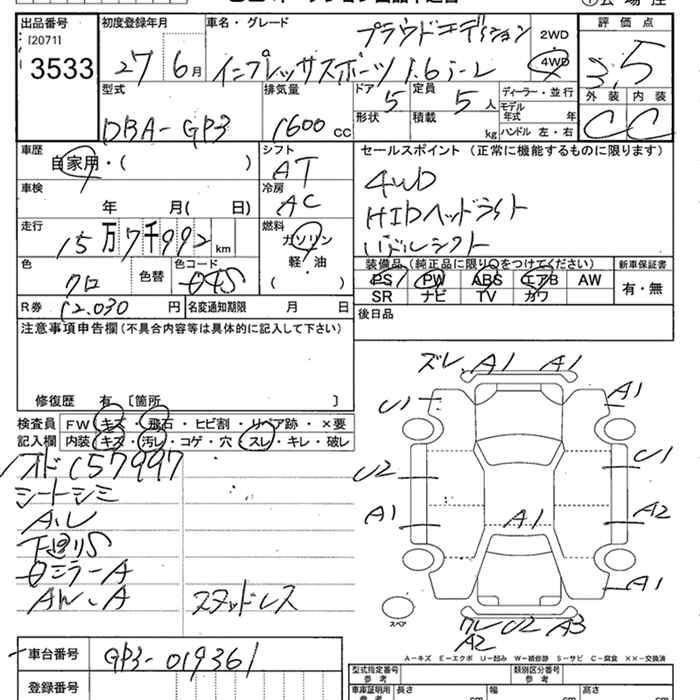 出品番号 初度登録年月 車名・グレード プラウドエディション 2WD 評価点
[2071]
3533 27 6月 インプレッサスポーツ 1.6i-L 4WD 3.5
型式 排気量 ドア 5 定員 5人 ディーラー・並行 外装 内装
形状 積載 kg モデル年式 年式 ハンドル 左・右
DBA-GP3 1600 cc C C
車歴 自家用・( ) シフト AT セールスポイント (正常に機能するものに限ります)
車検 年 月( 日) 冷房 AC 4WD
HIDヘッドライト
走行 15万7千992 km 燃料 ガソリン パドルシフト
軽・油
( )
色 クロ 色替 色コード 04S 装備品(純正品に限り○をつけてください) 新車保証書
PS PW ABS エアB AW 有・無
SR ナビ TV カワ
R券 12.030 円 名変通知期限 月 日 後日品
注意事項申告欄(不具合内容等は具体的に記入して下さい)
修復歴 有 〔箇所 〕
検査員 FW キズ・飛石・ヒビ割・リペア跡・×要
記入欄 内装 キズ・汚レ・コゲ・穴・スレ・キレ・破レ
メオド157997
シートシミ
下廻りS
ミラーA
スタッドレス
ズレ、A1 A1
U1 A1
U2 U1
A1 A1 A2
A1
スペア
ワレ U2 A3
A2
A-キズ E-エクボ U-凹み W-補修跡 S-サビ C-腐食 XX-交換済
車台番号 GP3-019361
型式指定番号 参考 類別区分番号 参考
登録番号 車庫証明用 参考 長さ cm 幅 cm 高さ cm